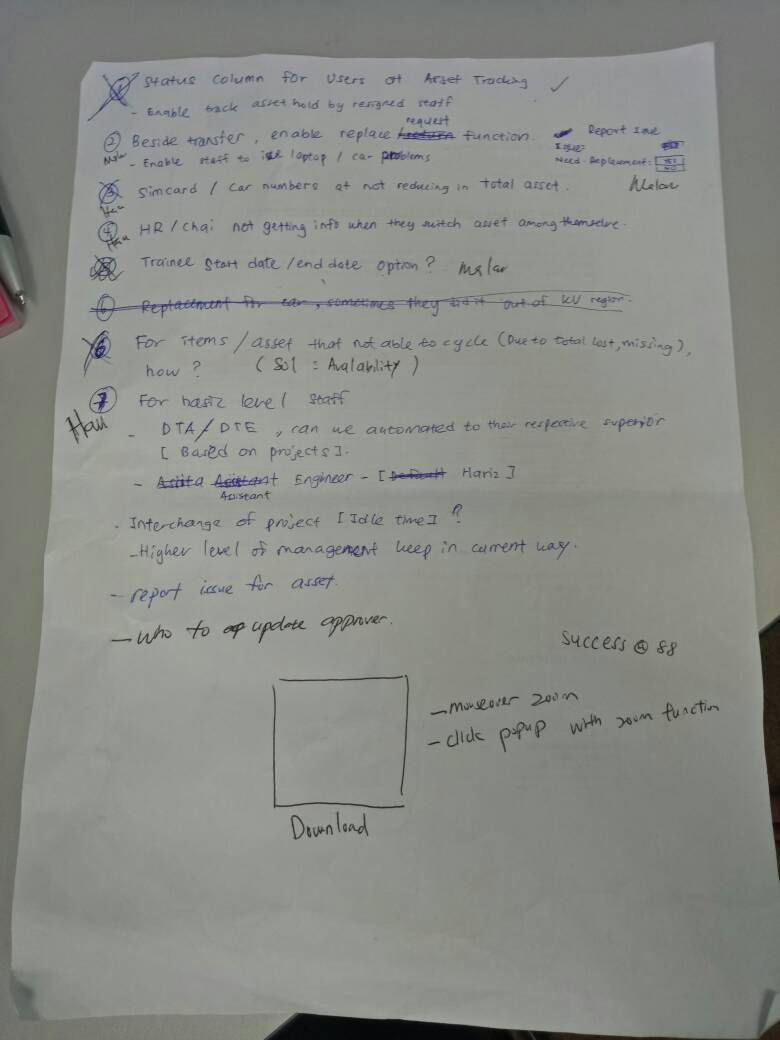 1 Status column for Users at Asset Tracking ✓
- Enable track asset hold by resigned staff
request
2 Beside transfer, enable replace function. Report Issue
Issue:
Malar - Enable staff to laptop / car problems Need Replacement: YES
NO
3 Simcard / Car numbers at not reducing in total asset. Malar
Hau
4 HR / Chai not getting info when they switch asset among themselve.
Hau
5 Trainee Start date / end date option? Malar
6 Replacement for car, sometimes they did it out of KV region.
6 For items / asset that not able to cycle (Due to total lost, missing),
how? (Sol : Avalability)
7 For basic level staff
Hau - DTA / DTE, can we automated to their respective superior
[Based on projects].
- Engineer - [Default Hariz]
Assistant
- Interchange of project [Idle time]?
- Higher level of management keep in current way.
- report issue for asset.
- Who to update approver.
Success @ 88
- mouseover zoom
- click popup with zoom function
Download